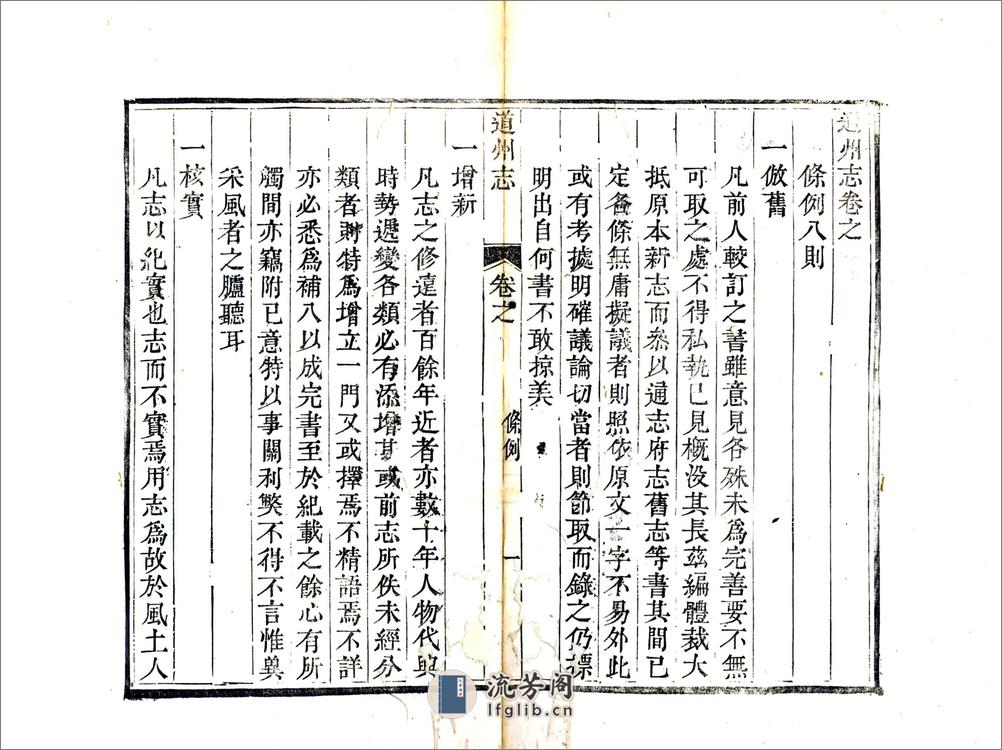 道州志卷之
條例八則
一倣舊
凡前人較訂之書雖意見各殊未為完善要不無
可取之處不得私執已見概没其長茲編體裁大
抵原本新志而叅以通志府志舊志等書其間已
定各條無庸擬議者則照依原文一字不易外此
或有考據明確議論切當者則節取而錄之仍標
明出自何書不敢掠美
道州志
卷之
條例
一
一增新
凡志之修遠者百餘年近者亦數十年人物代興
時勢遞變各類必有添增甚或前志所佚未經分
類者則特為增立一門又或擇焉不精語焉不詳
亦必悉為補入以成完書至於紀載之餘心有所
觸間亦竊附已意特以事關利獘不得不言惟兾
采風者之臚聽耳
一核實
凡志以紀實也志而不實焉用志為故於風土人
流芳阁
lfglib.cn